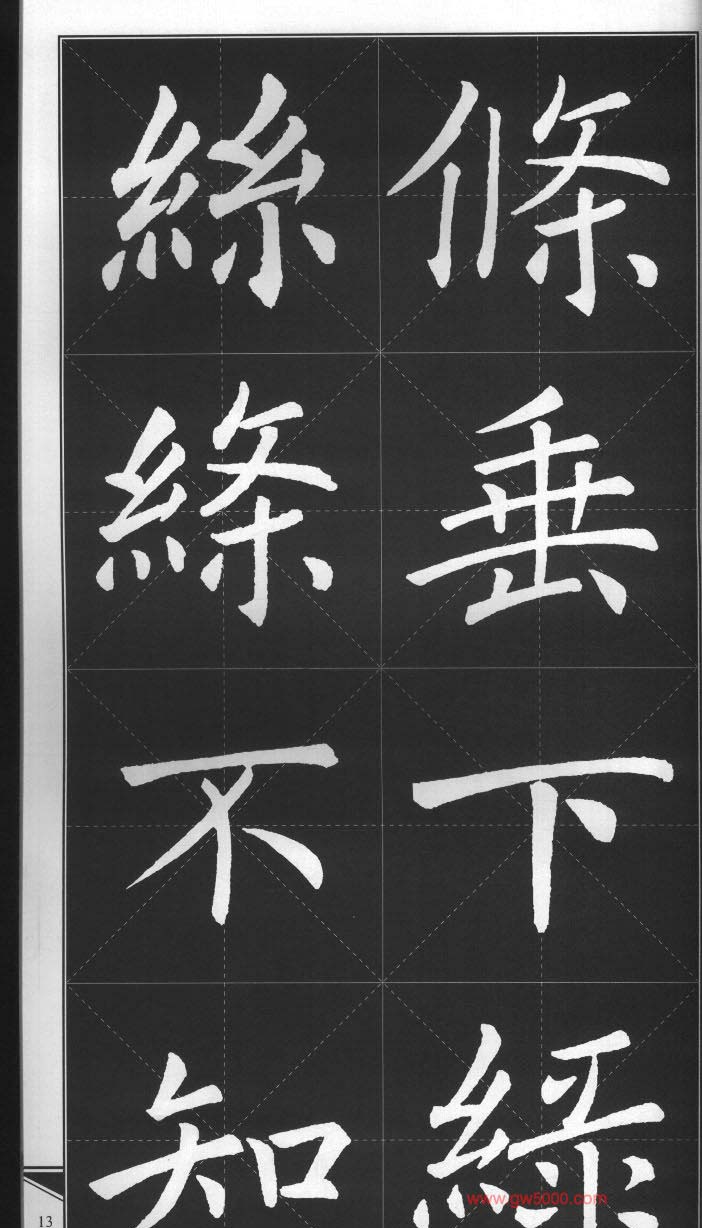 條垂下綠
絲縧不知
13
www.gw5000.com